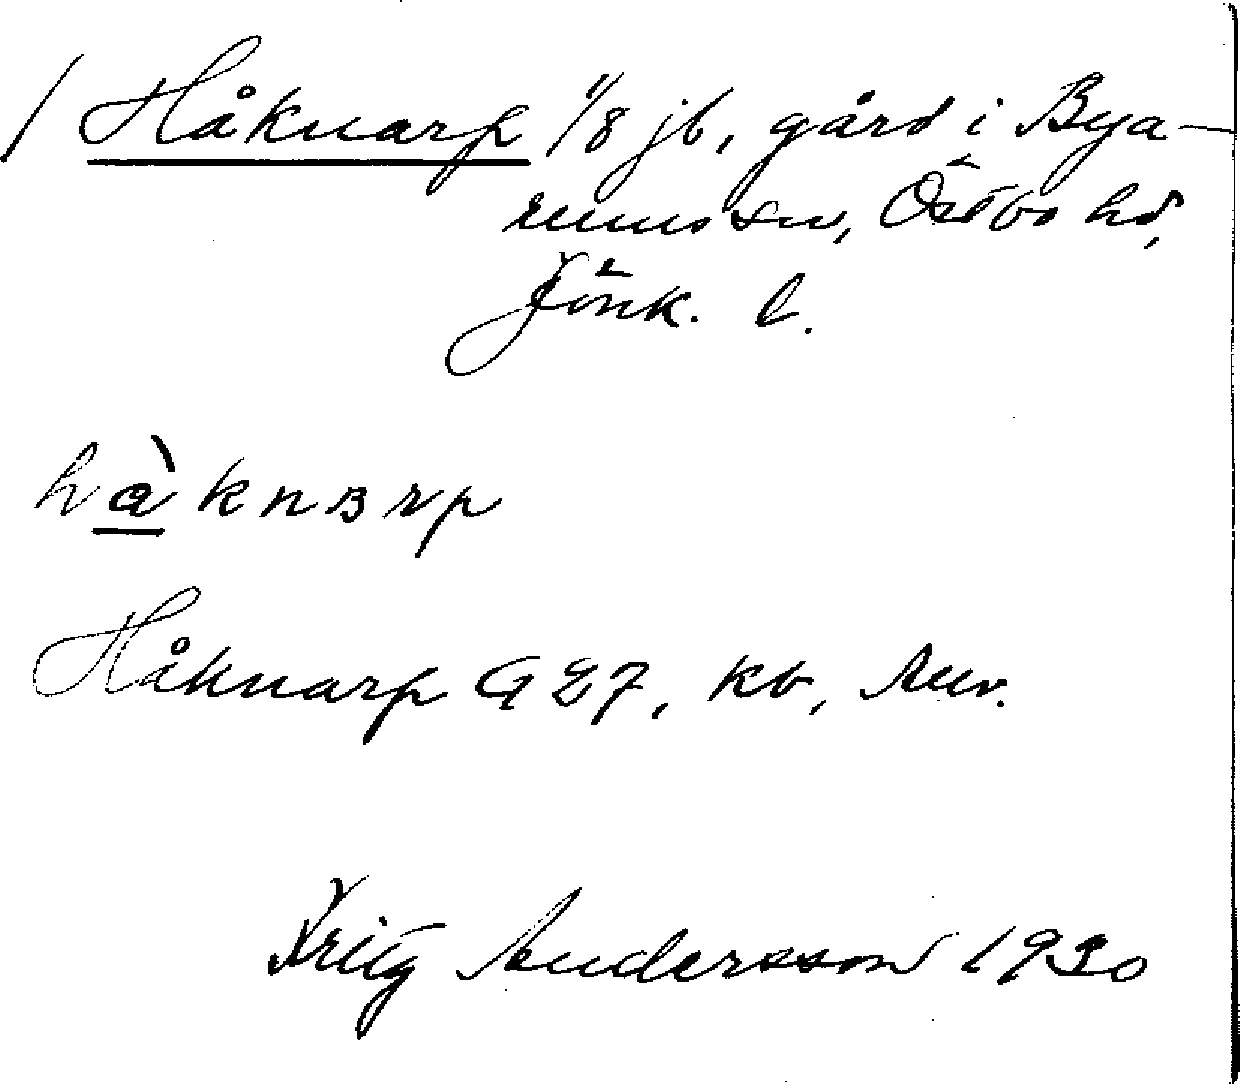 / Håknarp 1/8 jb, gård i Bya-
rums sn, Östbo hd,
Jönk. l.
hàknɒrp
Håknarp G E7, kb,
Fritz Andersson 1930